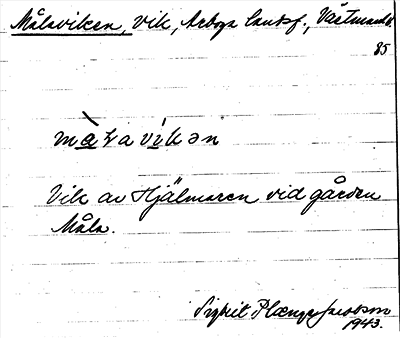 Målaviken, vik, Arboga landsf., Västmanl.
85
màlavikən
Vik av Hjälmaren vid gården
Måla.
Sigbrit Plænge Jacobson
1943.